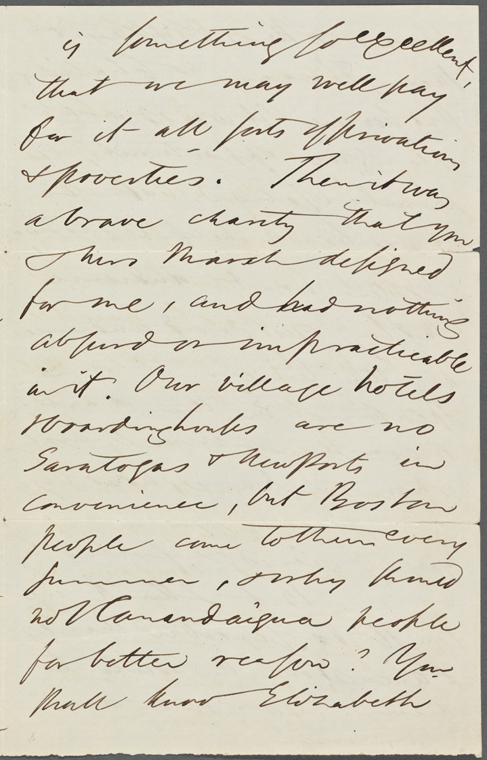 is something so excellent,
that we may well pay
for it all sorts of privations
& poverties. Then it was
a brave charity that you
& Miss Marsh designed
for me, and had nothing
absurd or impracticable
in it. Our village hotels
& boardinghouses are no
Saratogas & Newports in
convenience, but Boston
people come to them every
summer, & why should
not Canandaigua people
for better reason? You
shall know Elizabeth